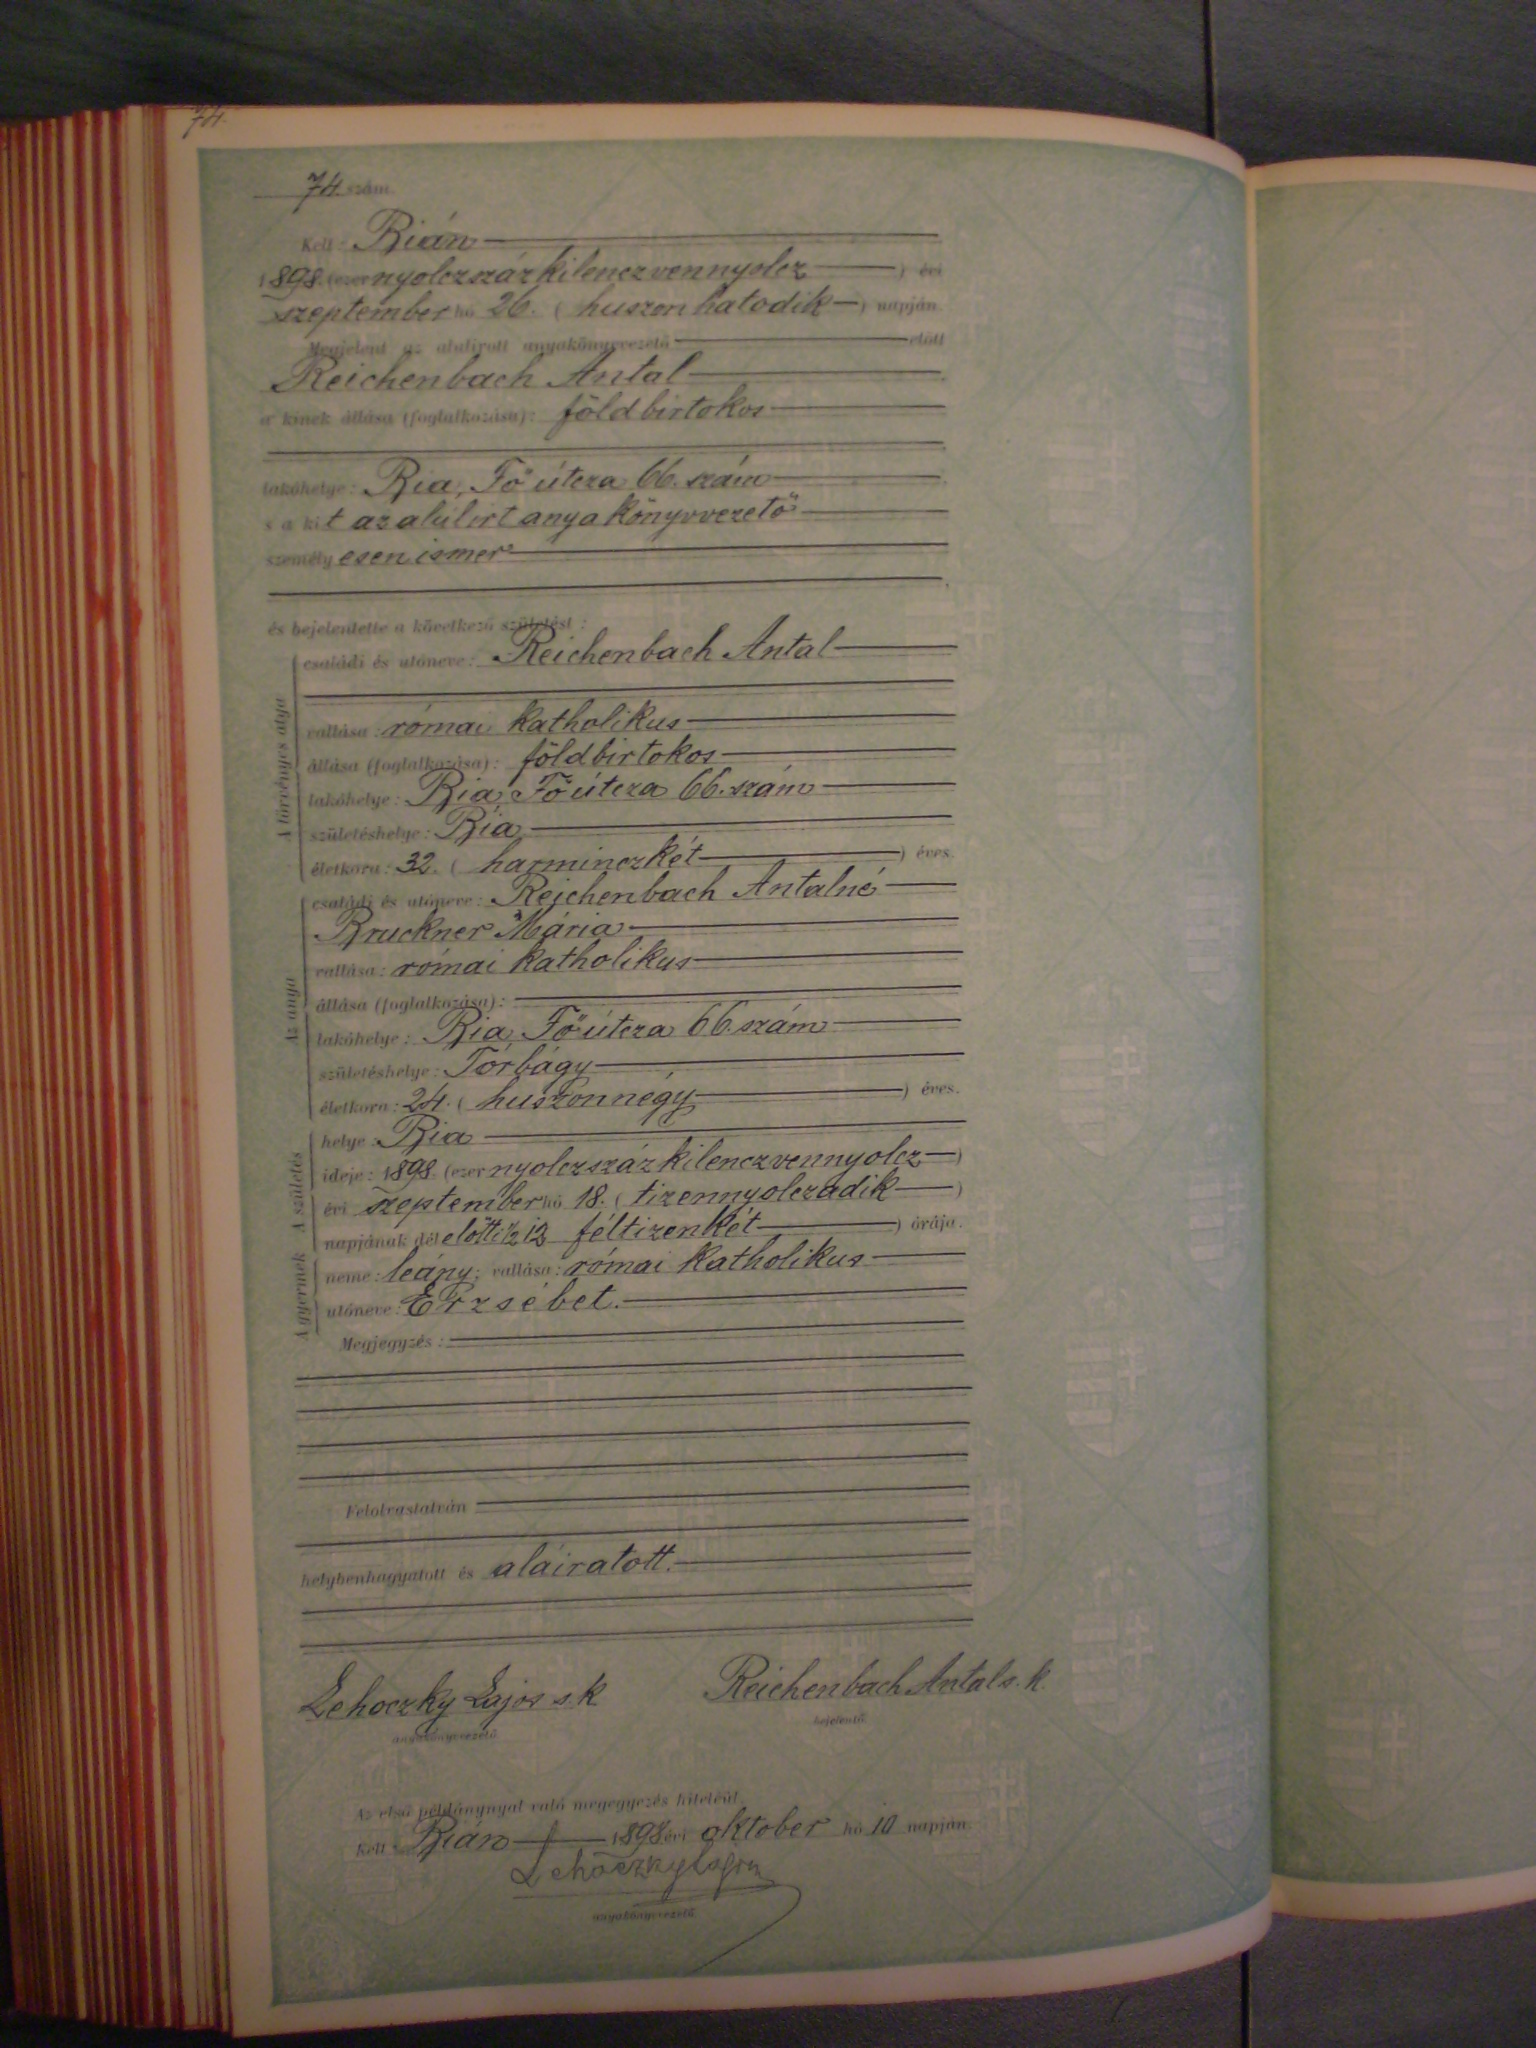 74.
74. szám.
Kelt: Bián
1898. (ezer nyolczszázkilenczvennyolcz ) évi
szeptember hó 26. ( huszonhatodik ) napján.
Megjelent az alulirott anyakönyvvezető előtt
Reichenbach Antal
a kinek állása (foglalkozása): földbirtokos
lakóhelye: Bia, Fő útcza 66. szám
s a kit az alúlirt anyakönyvvezető
személyesen ismer
és bejelentette a következő születést :
A törvényes atya
családi és utóneve: Reichenbach Antal
vallása: római katholikus
állása (foglalkozása): földbirtokos
lakóhelye: Bia, Fő útcza 66. szám
születéshelye: Bia
életkora: 32. ( harminczkét ) éves.
Az anya
családi és utóneve: Reichenbach Antalné
Bruckner Mária
vallása: római katholikus
állása (foglalkozása):
lakóhelye: Bia, Fő útcza 66. szám
születéshelye: Törbágy
életkora: 24. ( huszonnégy ) éves.
A születés
helye: Bia
ideje: 1898. (ezer nyolczszázkilenczvennyolcz )
évi szeptember hó 18. ( tizennyolczadik )
napjának délelőtti ½ 12 féltizenkét ) órája.
A gyermek
neme: leány; vallása: római katholikus
utóneve: Erzsébet.
Megjegyzés :
Felolvastatván
helybenhagyatott és aláiratott.
Lehoczky Lajos s.k. Reichenbach Antal s.k.
anyakönyvvezető bejelentő
Az első példánynyal való megegyezés hiteléül.
Kelt Bián 1898 évi oktober hó 10 napján
Lehoczky Lajos
anyakönyvvezető